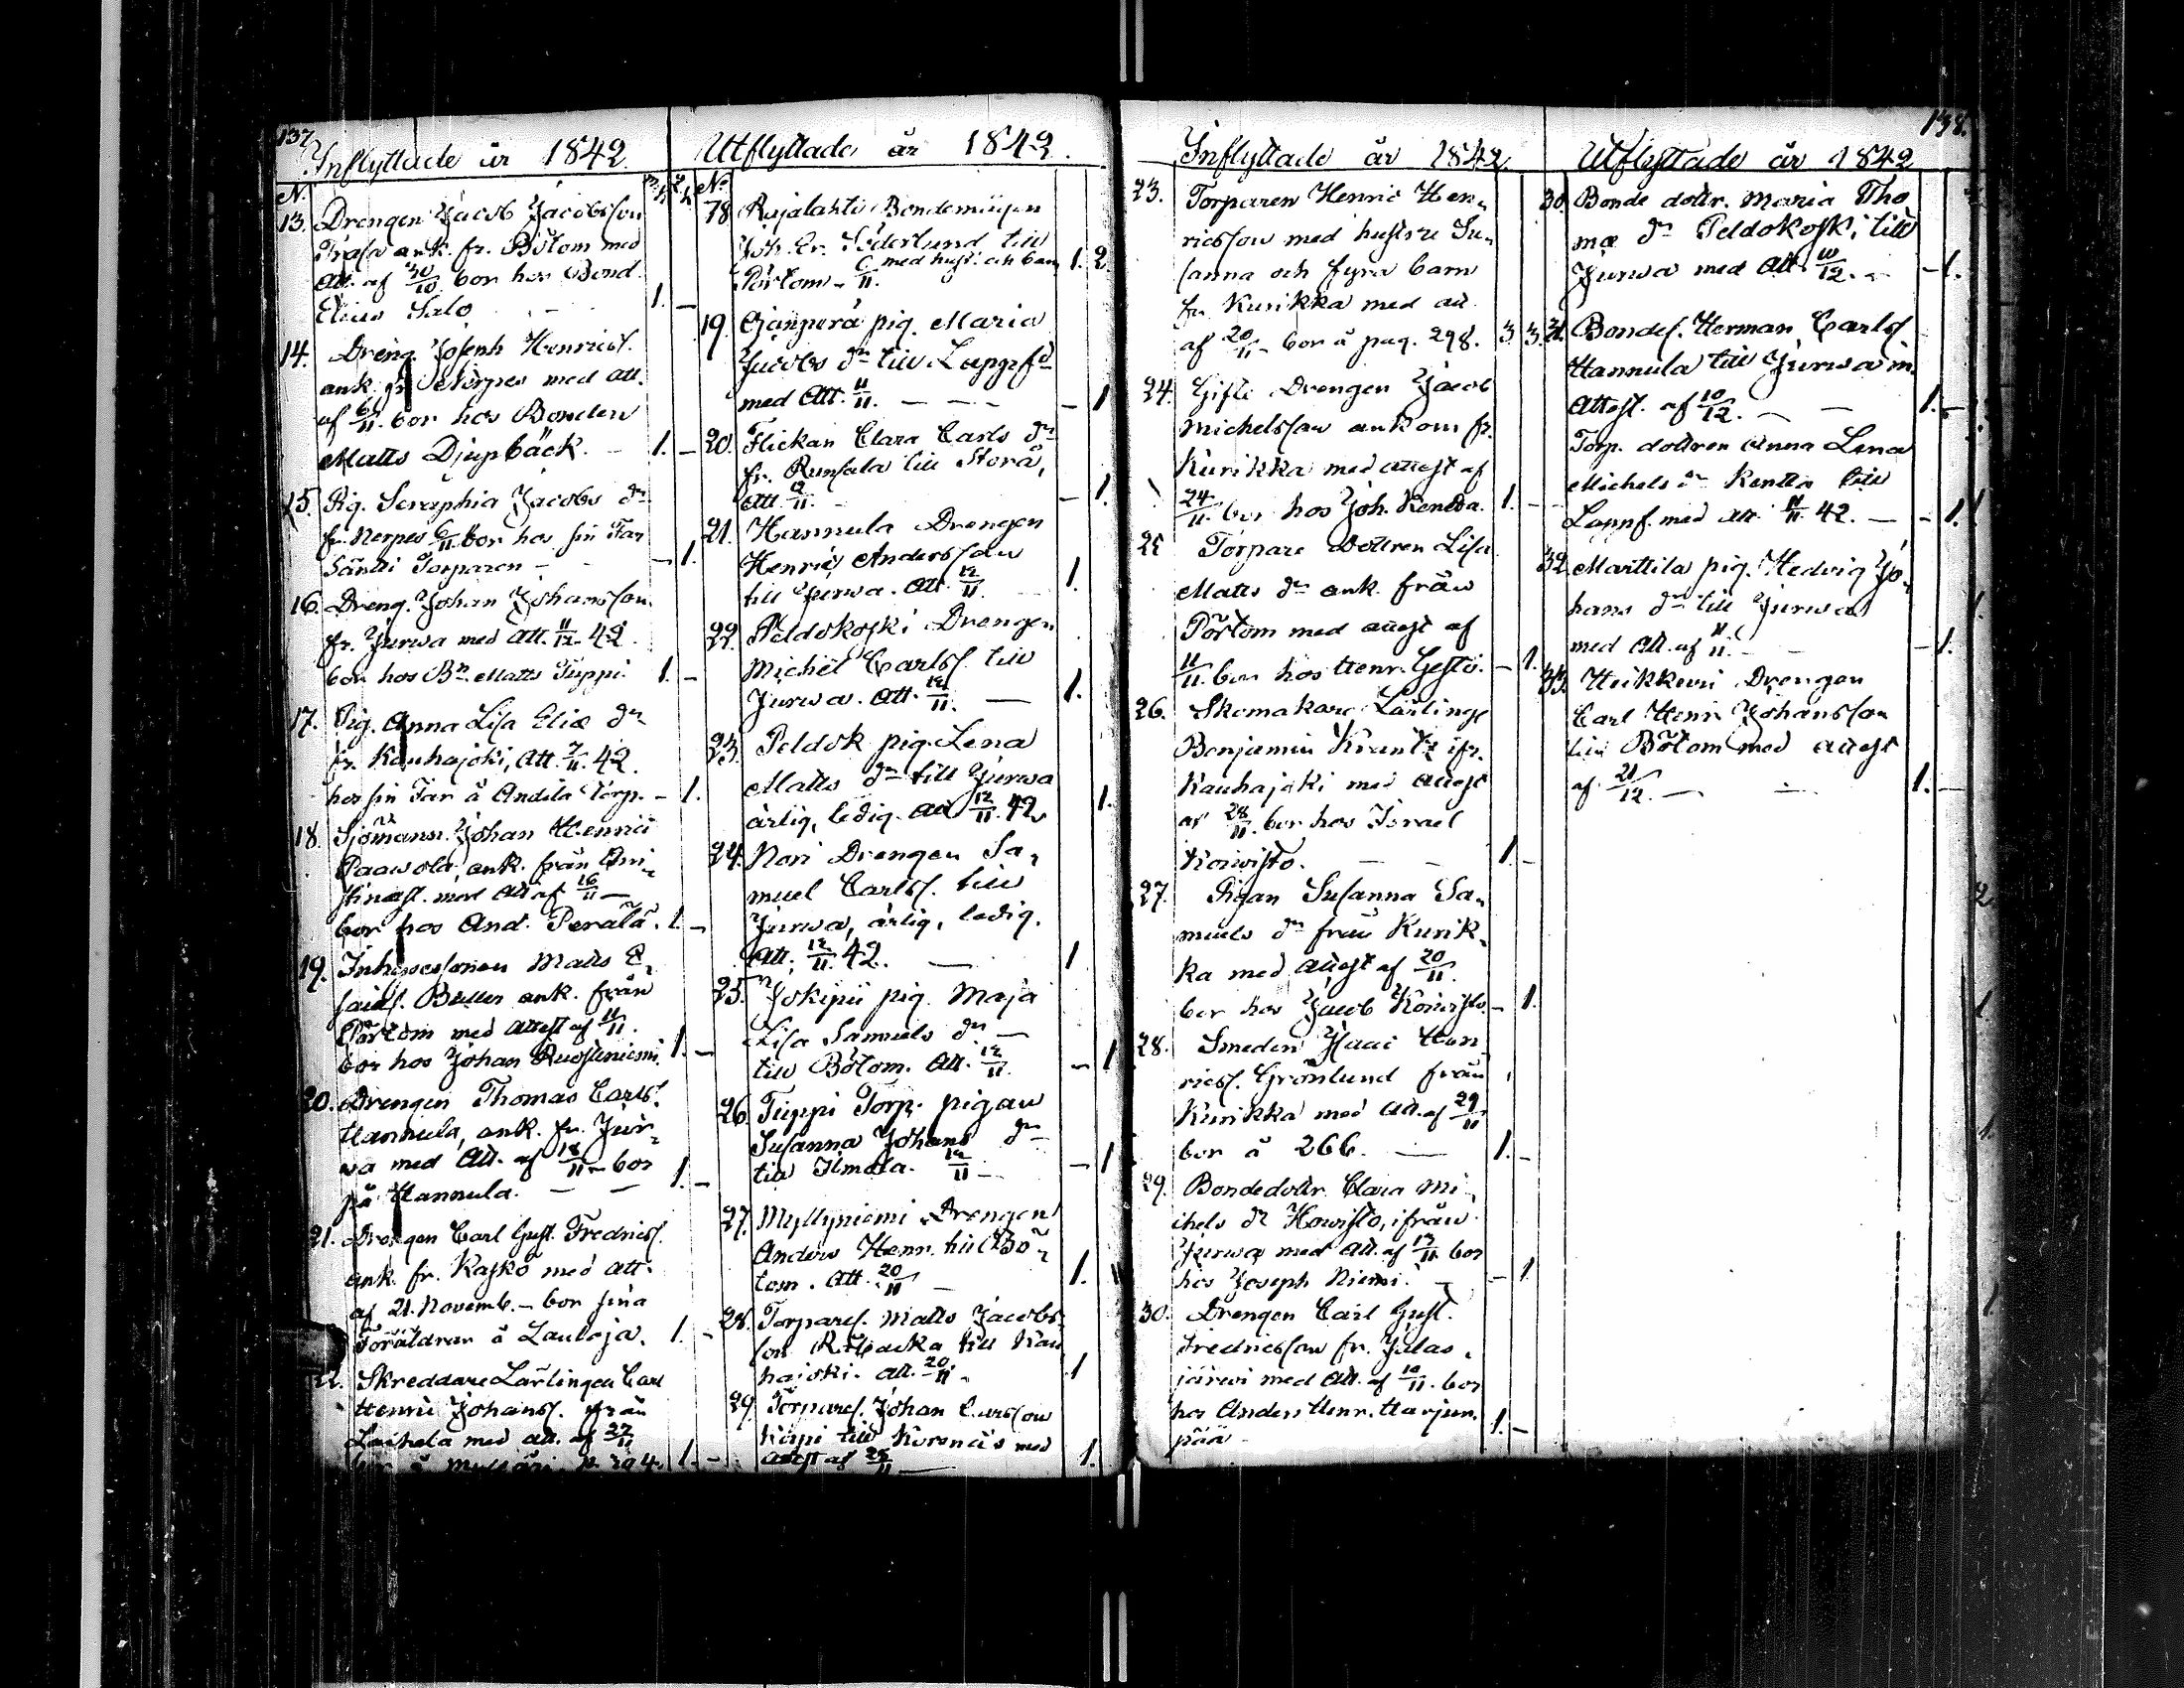 137.
Inflyttade år 1842.
N.
13. Drengen Jacob Jacobsson
ank. fr. Bötom med
Att. af 30/10 bor hos Bond.
Elias Salo - 1. -
14. Dreng. Joseph Henrics.
ank. fr Nerpes med att.
af 6/11. bor hos Bonden
Matts Djupbäck. - 1. -
15. Pig. Seraphia Jacobs dr
fr. Nerpes 6/11 bor hos sin Far
Torparen - - 1.
16. Dreng. Johan Johansson
fr. Jurwa med Att. 11/12 42.
bor hos Bn Matts Tuppi. 1. -
17. Pig. Anna Lisa Eliæ dr
fr. Kauhajoki, Att. 7/11. 42.
hos sin Far å Andila Torp. - 1.
18. Sjöman Johan Henrici
Paawola, ank. från Kri-
stinæst. med Att af 16/11 -
bor hos And. Perälä. 1. -
19. Inhysessonen Matts E.
ank. från
Pörtom med attest af 11/11.
bor hos Johan 1. -
20. Drengen Thomas Carls.
Hannula, ank. fr. Jur-
wa med Att. af 12/11 - bor
på Hannula. - - 1. -
21. Drengen Carl Gust. Fredrics.
ank. fr. Kaskö med att.
af 21. Novemb. - bor sina
Föräldrar å Lauloja. 1. -
22. Skreddare Lärlingen Carl
Henric Johans. från
Laihela med att. af 27/11
1. -
Utflyttade år 1842.
No
18 Rajalahti Bondemågen
Joh. Er. Söderlund till
med hust. och barn 1. 2.
Pörtom - 6/11.
19. pig. Maria
Jacobs dr till Lappfd
med Att. 11/11. - - - - 1
20. Flickan Clara Carls dr
fr. till Storå,
Att. 12/11. - 1.
21. Hannula Drengen
Henric Andersson
till Jurwa. Att. 12/11. 1.
22. Peldokoski Drengen
Michel Carls. till
Jurwa. Att. 12/11. - 1.
23. Peldok pig. Lena
Matts dr till Jurwa
ärlig, ledig. Att 12/11. 42. 1.
24. Nori Drengen Sa-
muel Carls. till
Jurwa, ärlig, ledig.
Att. 12/11. 42. - 1
25. Jokipii pig. Maja
Lisa Samuels dr -
till Bötom. Att. 12/11. - 1
26. Tuppi Torp. pigan
Susanna Johans dr
till Ilmola. 12/11 - - 1
27. Myllyniemi Drengen
Anders Henr. till Bö-
tom. Att. 20/11 - 1.
28. Torpares. Matts Jacobs-
son till Kau
hajoki. att. 20/11. 1
29. Torpares. Johan Carlsson
till Korsnäs med
attest af 25/11 - 1.
Inflyttade år 1842.
23. Torparen Henric Hen-
ricsson med hustru Su-
sanna och fyra barn
fr. Kurikka med att
af 20/11 - bor å pag. 298. 3 3.
24. Gifte Drengen Jacob
Michelsson ankom fr.
Kurikka med attest af
24/11. bor hos Joh. 1. -
25 Torpare Dottren Lisa
Matts dr ank. från
Pörtom med attest af
11/11. bor hos Henr. - 1.
26. Skomakare Lärlinge
Benjamin Krantz ifr.
Kauhajoki med attest
af 28/11. bor hos Israel
Koiwisto. - - 1. -
27. Pigan Susanna Sa-
muels dr från Kurik-
ka med attest af 20/11.
bor hos Jacob Koiwisto - 1.
28. Smeden Isaac Hen
rics. Grönlund från
Kurikka med Att. af 29/11
bor å 266. - 1. -
29. Bondedottr. Clara Mi-
chels dr Koiwisto, ifrån
Jurwa med Att. af 13/11 bor
hos Joseph Niemi. - - 1
30. Drengen Carl Gust.
Fredricsson fr. Jalas-
järwi med Att. af 10/11. bor
hos Anders Henr. Harjun-
pää - 1. -
138.
Utflyttade år 1842
30. Bonde dottr. Maria Tho
mæ dr Peldokoski till
Jurwa med Att 10/12. - - 1.
31. Bondes. Herman Carls
Hannula till Jurwa m.
Attest. af 10/12. - - 1. -
Torp. dottren Anna Lena
Michels dr Kentta till
Lappf. med att. 11/11. 42. - - 1.
32 Marttila pig. Hedvig Jo-
hans dr till Jurwa
med Att. af 11/11. - - - 1.
33. Drengen
Carl Henr. Johansson
till Bötom med attest
af 21/12. - - 1. -